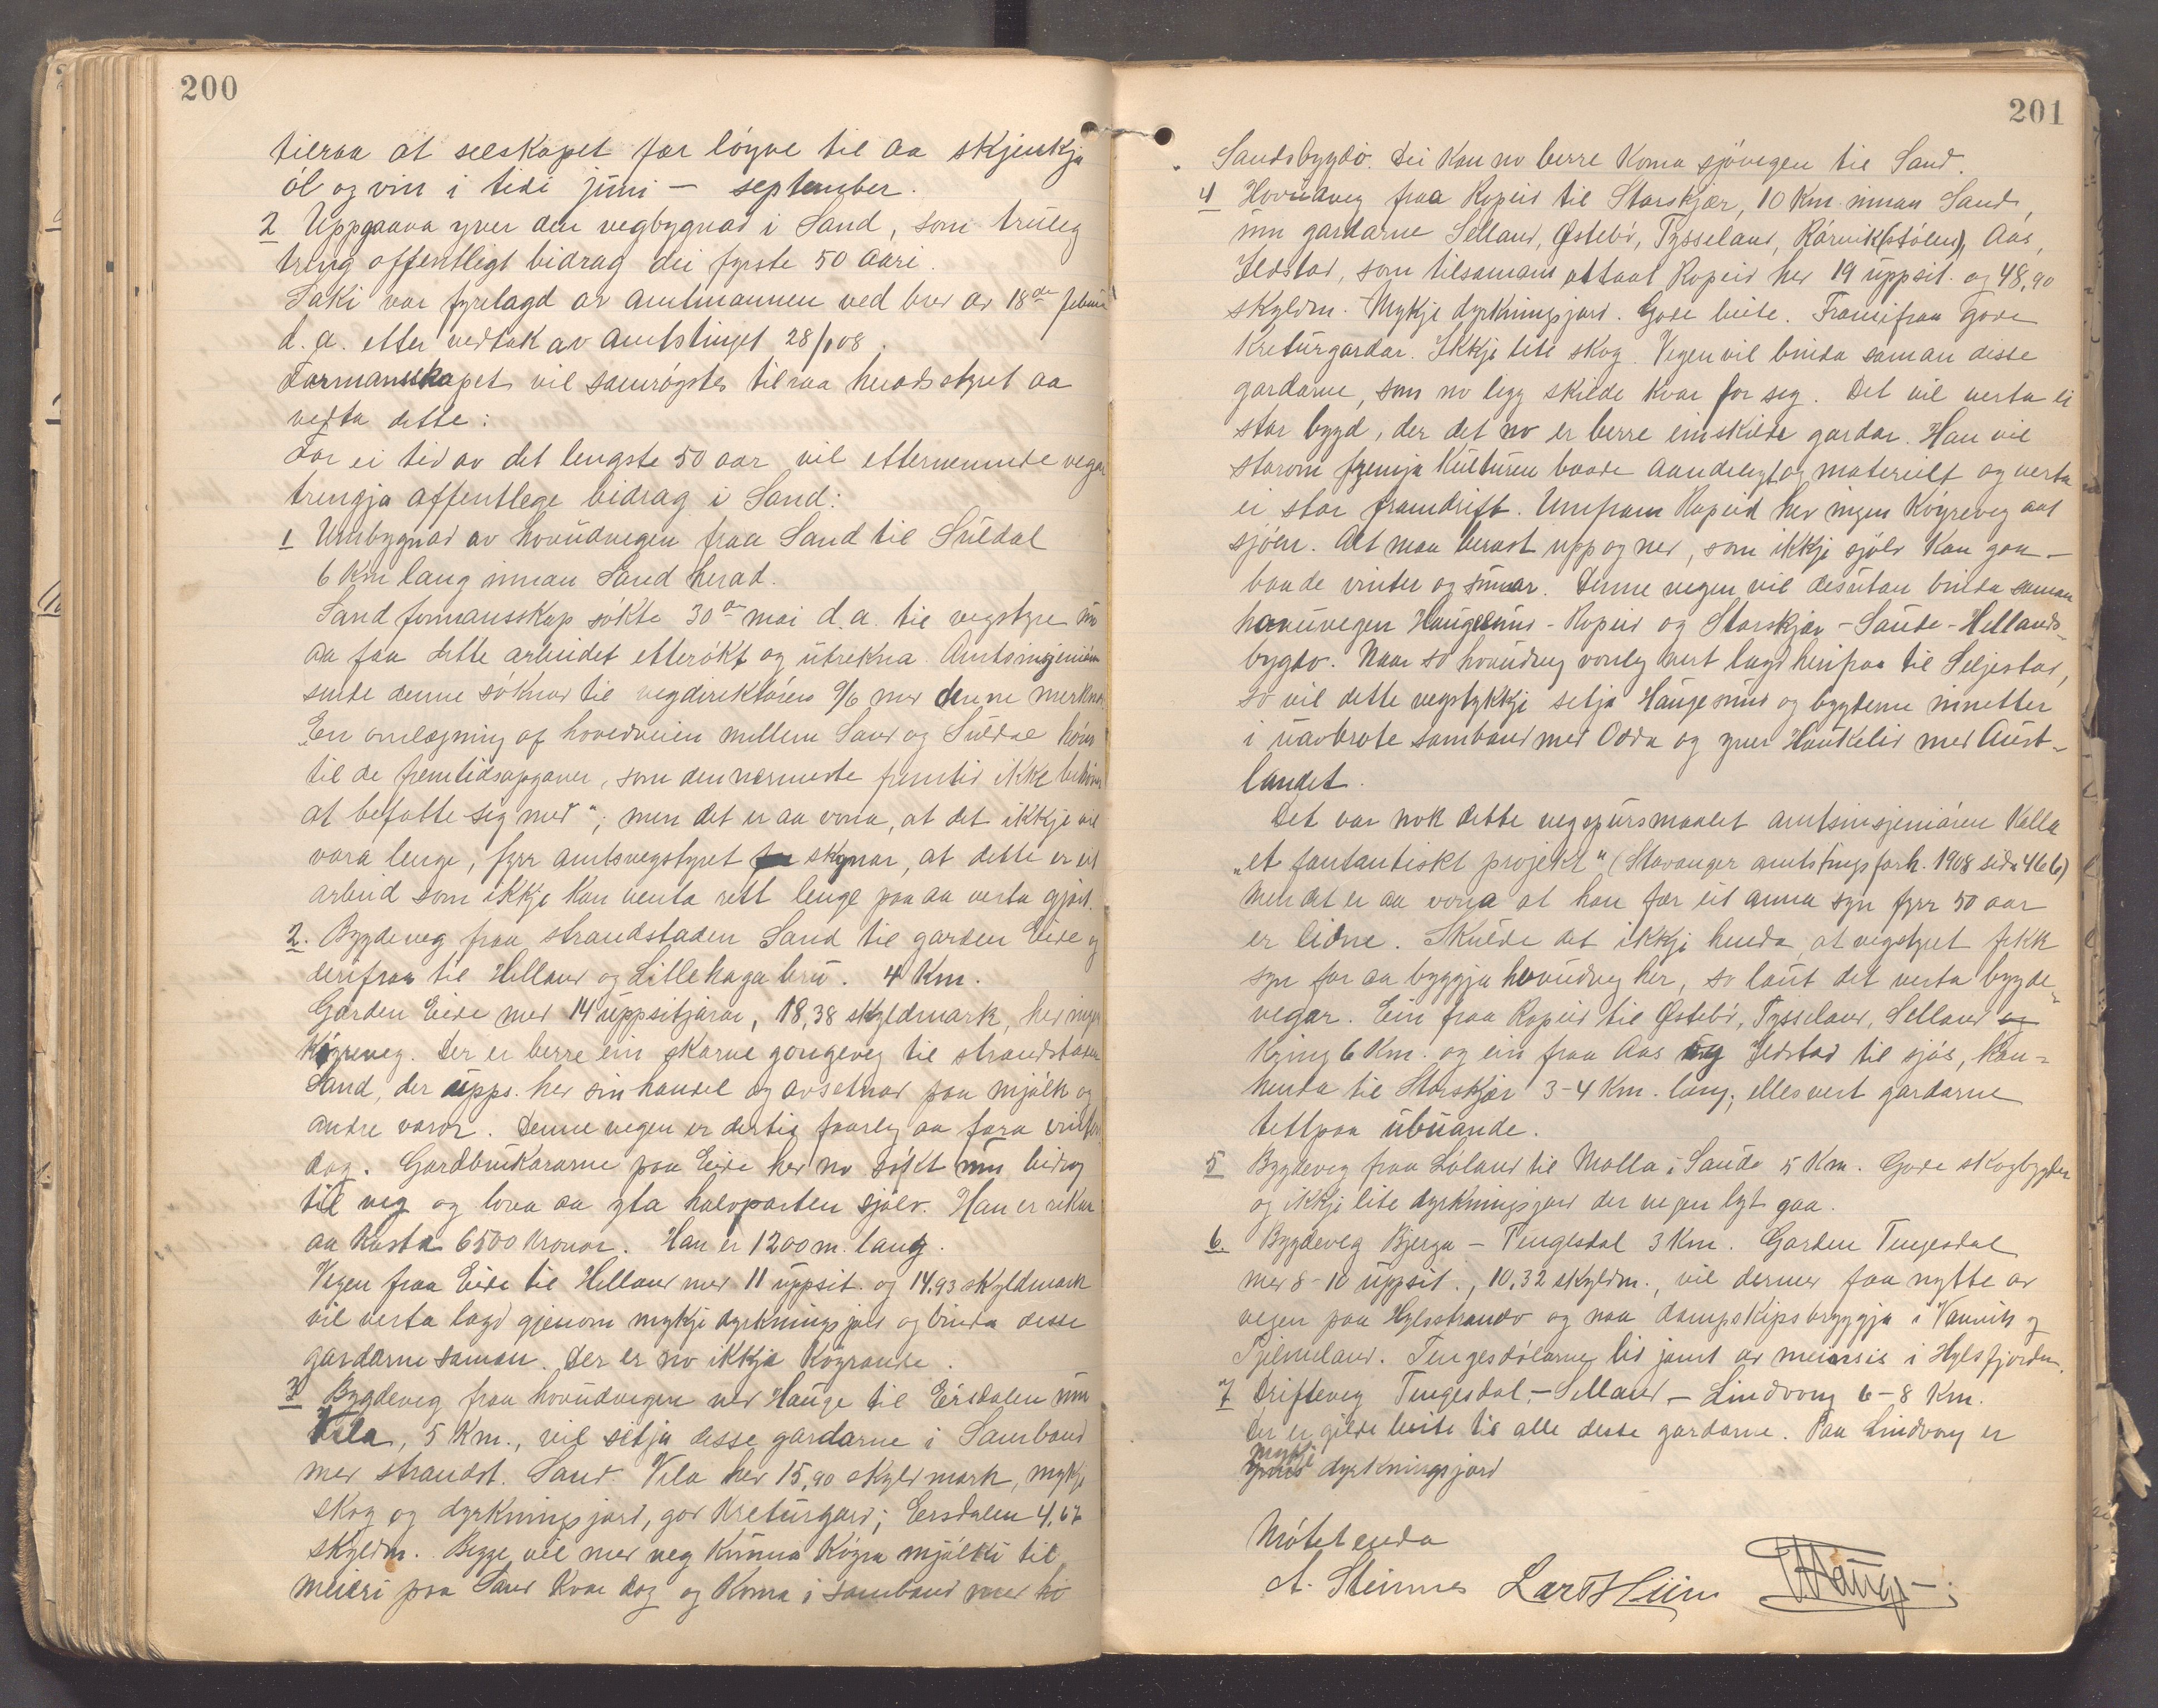 200
tilraa at selskapet fær löyve til aa skjenkja
öl og vin i tidi juni – september.
2 Uppgaava yver den vegbygnad i Sand, som truleg
treng offentlegt bidrag dei fyrste 50 aari.
Saki var fyrelagd av amtmannen ved brev av 18de februar
d. a. etter vedtak av amtstinget 28/1 08.
Formannskapet vil samrøystes tilraa heradsstyret aa
vedta dette:
For ei tid av det lengste 50 aar vil etternemnde vegar
trengja offentlege bidrag i Sand:
1 Umbygnad av hovudvegen fraa Sand til Suldal
6 km lang innan Sand herad.
Sand formansskap søkte 30te mai d. a. til vegstyre um
aa faa dette arbeidet etterøkt og utrekna. Amtsingeniøren
sende denne søknad til vegdirektøren 9/6 med denne merknad
"En omlægning af hovedveien mellem Sand og Suldal hører
til de fremtidsopgaver, som den nærmeste fremtid ikke behøver
at befatte sig med"; men det er aa vona, at det ikkje vil
vara lenge, fyrr amtsvegstyret skynar, at dette er eit
arbeid som ikkje kan venta rett lenge paa aa verta gjort.
2. Bygdeveg fraa strandstaden Sand til garden Eide og
derifraa til Helland og Litlehaga bru. 4 Km.
Garden Eide med 14 uppsitjarar, 18,38 skyldmark, her ingen
Köyreveg. Der er berre ein skarve gongeveg til strandstaden
Sand, der upps. her sin handel og avsetnad paa mjölk og
andre varor. Denne vegen er dertil faarleg aa fara vinters
dag. Gardbrukararne paa Eide her no søkt um bidrag
til veg og lova aa yta halvparten sjølv. Han er rekna
aa kosta 6500 kronor. Han er 1200 m. lang.
Vegen fraa Eide til Helland med 11 uppsit. og 14,93 skyldmark
vil verta lagd gjenom mykje dyrkningsjord og binda desse
gardarne saman. Der er no ikkje Köyrande.
3 Bygdeveg fraa hovudvegen ved Hauge til Eirsdalen um
Vela, 5 Km., vil setja desse gardarne i Samband
med strandst. Sand. Vela her 15,90 skyldmark, mykje
skog og dyrkningsjord, god Kreturgard; Eersdalen 4,67
skyldm. Begge vil med veg kunna köyra mjölki til
meieri paa Sand kvar dag og koma i samband med hi
201
Sandsbygdo. Dei kan no berre koma sjövegen til Sand.
4 Hovudveg fraa Ropeid til Storskjær, 10 Km. innan Sand,
um gardarne Selland, Østebö, Tysseland, Rörvik(stölen), Aas,
Jedstad, som tilsamans attaat Ropeid her 19 uppsit. og 48,90
skyldm. Mykje dyrkningsjord. Gode beite. Framifraa gode
kreturgardar. Ikkje lite skog. Vegen vil binda saman disse
gardarne, som no ligg skilde kvar for seg. Det vil verta ei
stor bygd, der det no er berre einskilde gardar. Han vil
storom fremja kulturen baade aandelegt og materielt og verta
ei stor framdrift. Umfram Ropeid her ingen Köyreveg aat
sjöen. Alt maa berast upp og ned, som ikkje sjölv kan gaa –
baade vinter og sumar. Denne vegen vil desutan binda saman
hovudvegen Haugesund – Ropeid og Storskjær – Saude – Hellands-
bygdo. Naar so hovudveg vonleg vert lagd herifraa til Seljestad,
so vil dette vegstykkje setja Haugesund og bygderne innetter
i uavbrote samband med Odda og yver Haukelid med Aust-
landet.
Det var nok dette vegspursmaalet amtsinsjeniören kalla
"et fantantiskt projekt" (Stavanger amtstingsforh. 1908 sida 466)
Men det er aa vona at han fær eit anna syn fyrr 50 aar
er lidne. Skulde det ikkje henda, at vegstyret fekk
syn for aa byggja hovudveg her, so laut det verta bygde-
vegar. Ein fraa Ropeid til Østebö, Tysseland, Selland
kring 6 Km. og ein fraa Aas og Jedstad til sjös, kan-
henda til Storskjær 3-4 Km. lang; elles vert gardarne
tettpaa ubuande.
5 Bygdeveg fraa Löland til Molla i Saude 5 Km. Gode skogbygder
og ikkje lite dyrkningsjord der vegen lyt gaa.
6. Bygdeveg Bjerga – Tengesdal 3 Km. Garden Tengesdal
med 8-10 uppsit., 10,32 skyldm., vil dermed faa nytte av
vegen paa Hylsstrando og naa dampskipsbryggja i Vanvik og
Tjelmeland. Tengesdölarne lid jamt av meinsis i Hylsfjorden.
7 Drifteveg Tengesdal – Selland – Lindvong 6-8 Km.
Der er gilde beite til alle desse gardarne. Paa Lindvong er
mykje dyrkningsjord
Mötet enda
A. Steinnes Lars Hiim